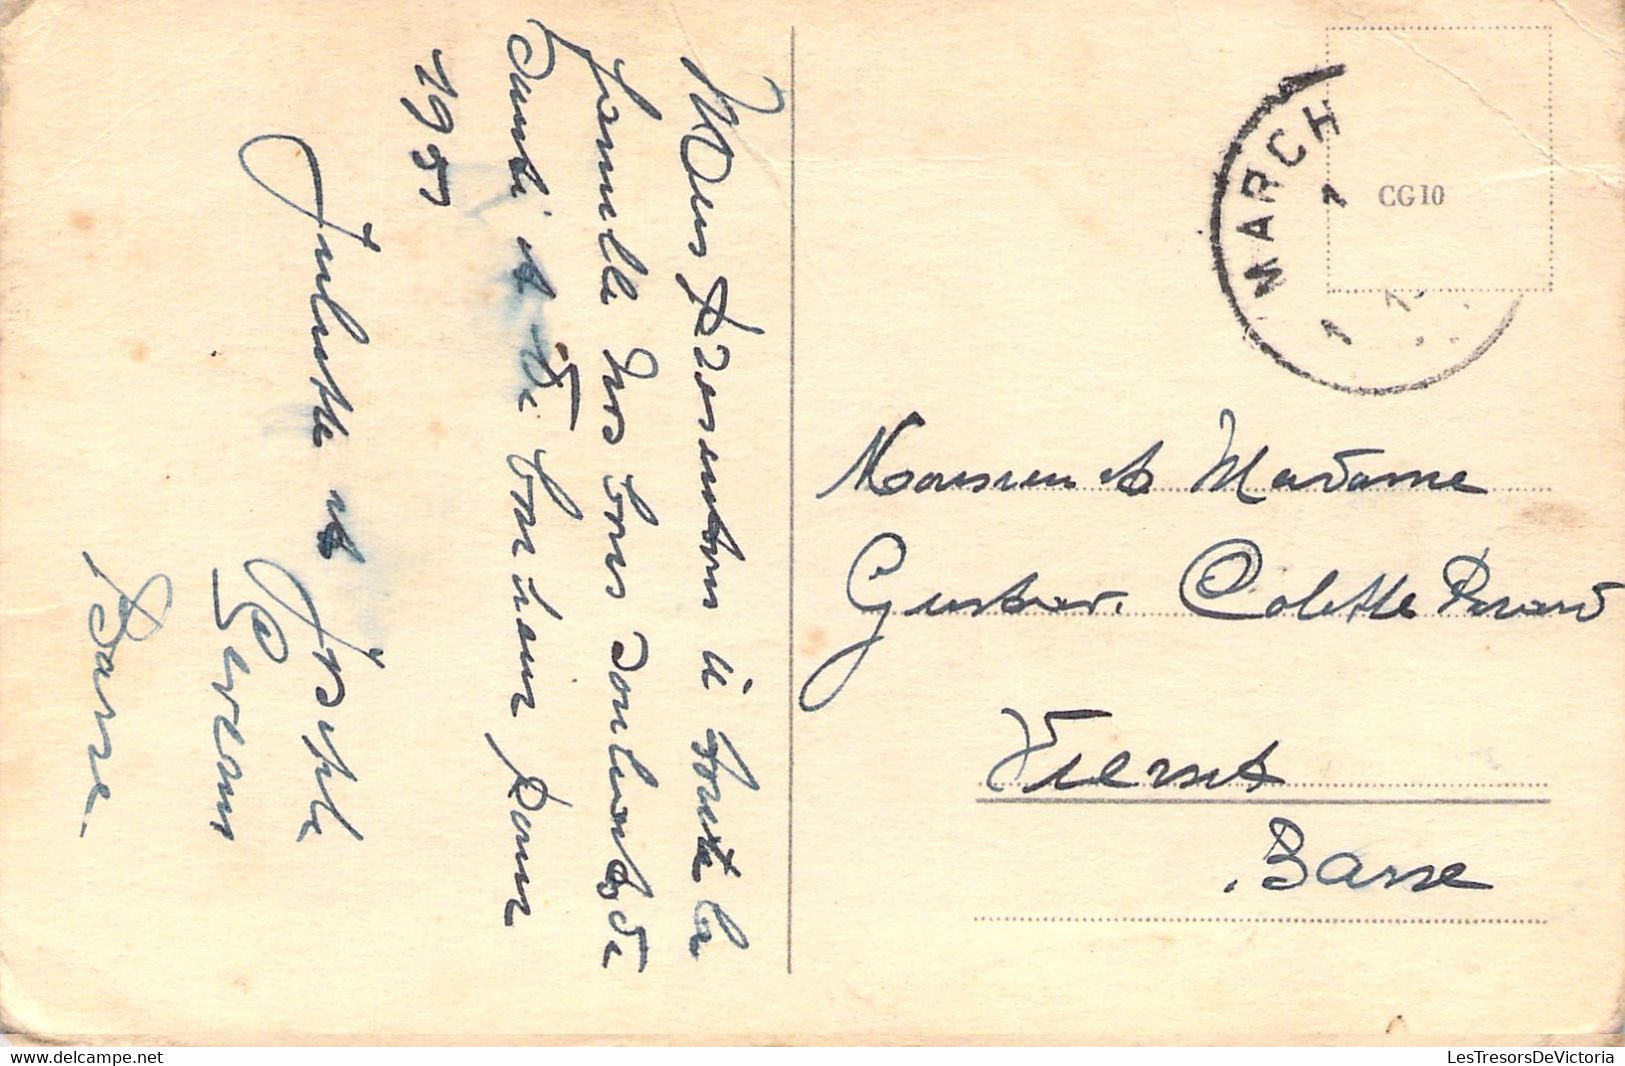 Nous présentons à toute la
famille nos bons souhaits de
Santé et de bonheur pour
1951
Juliette et Joseph
Barse
MARCH
1
1
CG10
Monsieur et Madame
Gustave. Colette
Vierset
Barse
LesTresorsDeVictoria